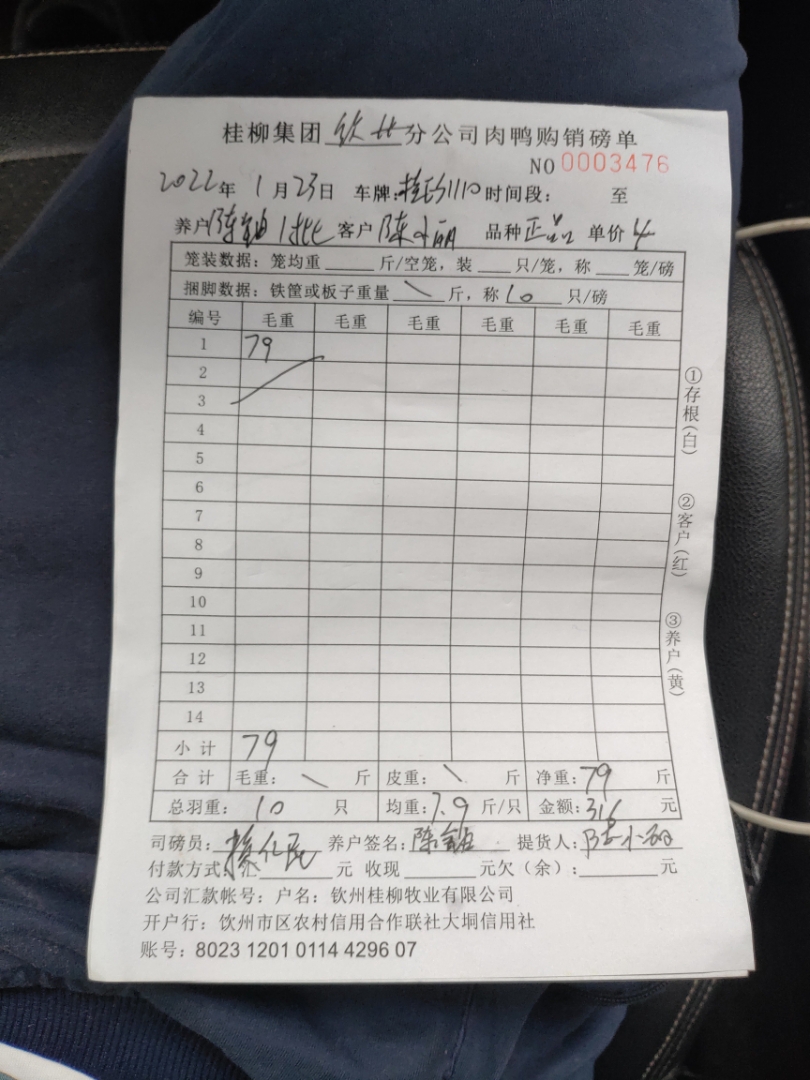 桂柳集团 钦北 分公司肉鸭购销磅单
NO 0003476
2022年 1月23日 车牌: 1110 时间段: 至
养户 陈 1批 客户 陈小丽 品种 正品 单价 4
笼装数据: 笼均重 斤/空笼, 装 只/笼, 称 笼/磅
捆脚数据: 铁筐或板子重量 \ 斤, 称 10 只/磅
编号 毛重 毛重 毛重 毛重 毛重 毛重
1 79
2
3
4
5
6
7
8
9
10
11
12
13
14
小计 79
合计 毛重: \ 斤 皮重: \ 斤 净重: 79 斤
总羽重: 10 只 均重: 7.9 斤/只 金额: 316 元
司磅员: 养户签名: 陈 提货人: 陈小丽
付款方式: 汇 元 收现 元欠(余): 元
公司汇款帐号: 户名: 钦州桂柳牧业有限公司
开户行: 饮州市区农村信用合作联社大垌信用社
账号: 8023 1201 0114 4296 07
①存根(白)
②客户(红)
③养户(黄)